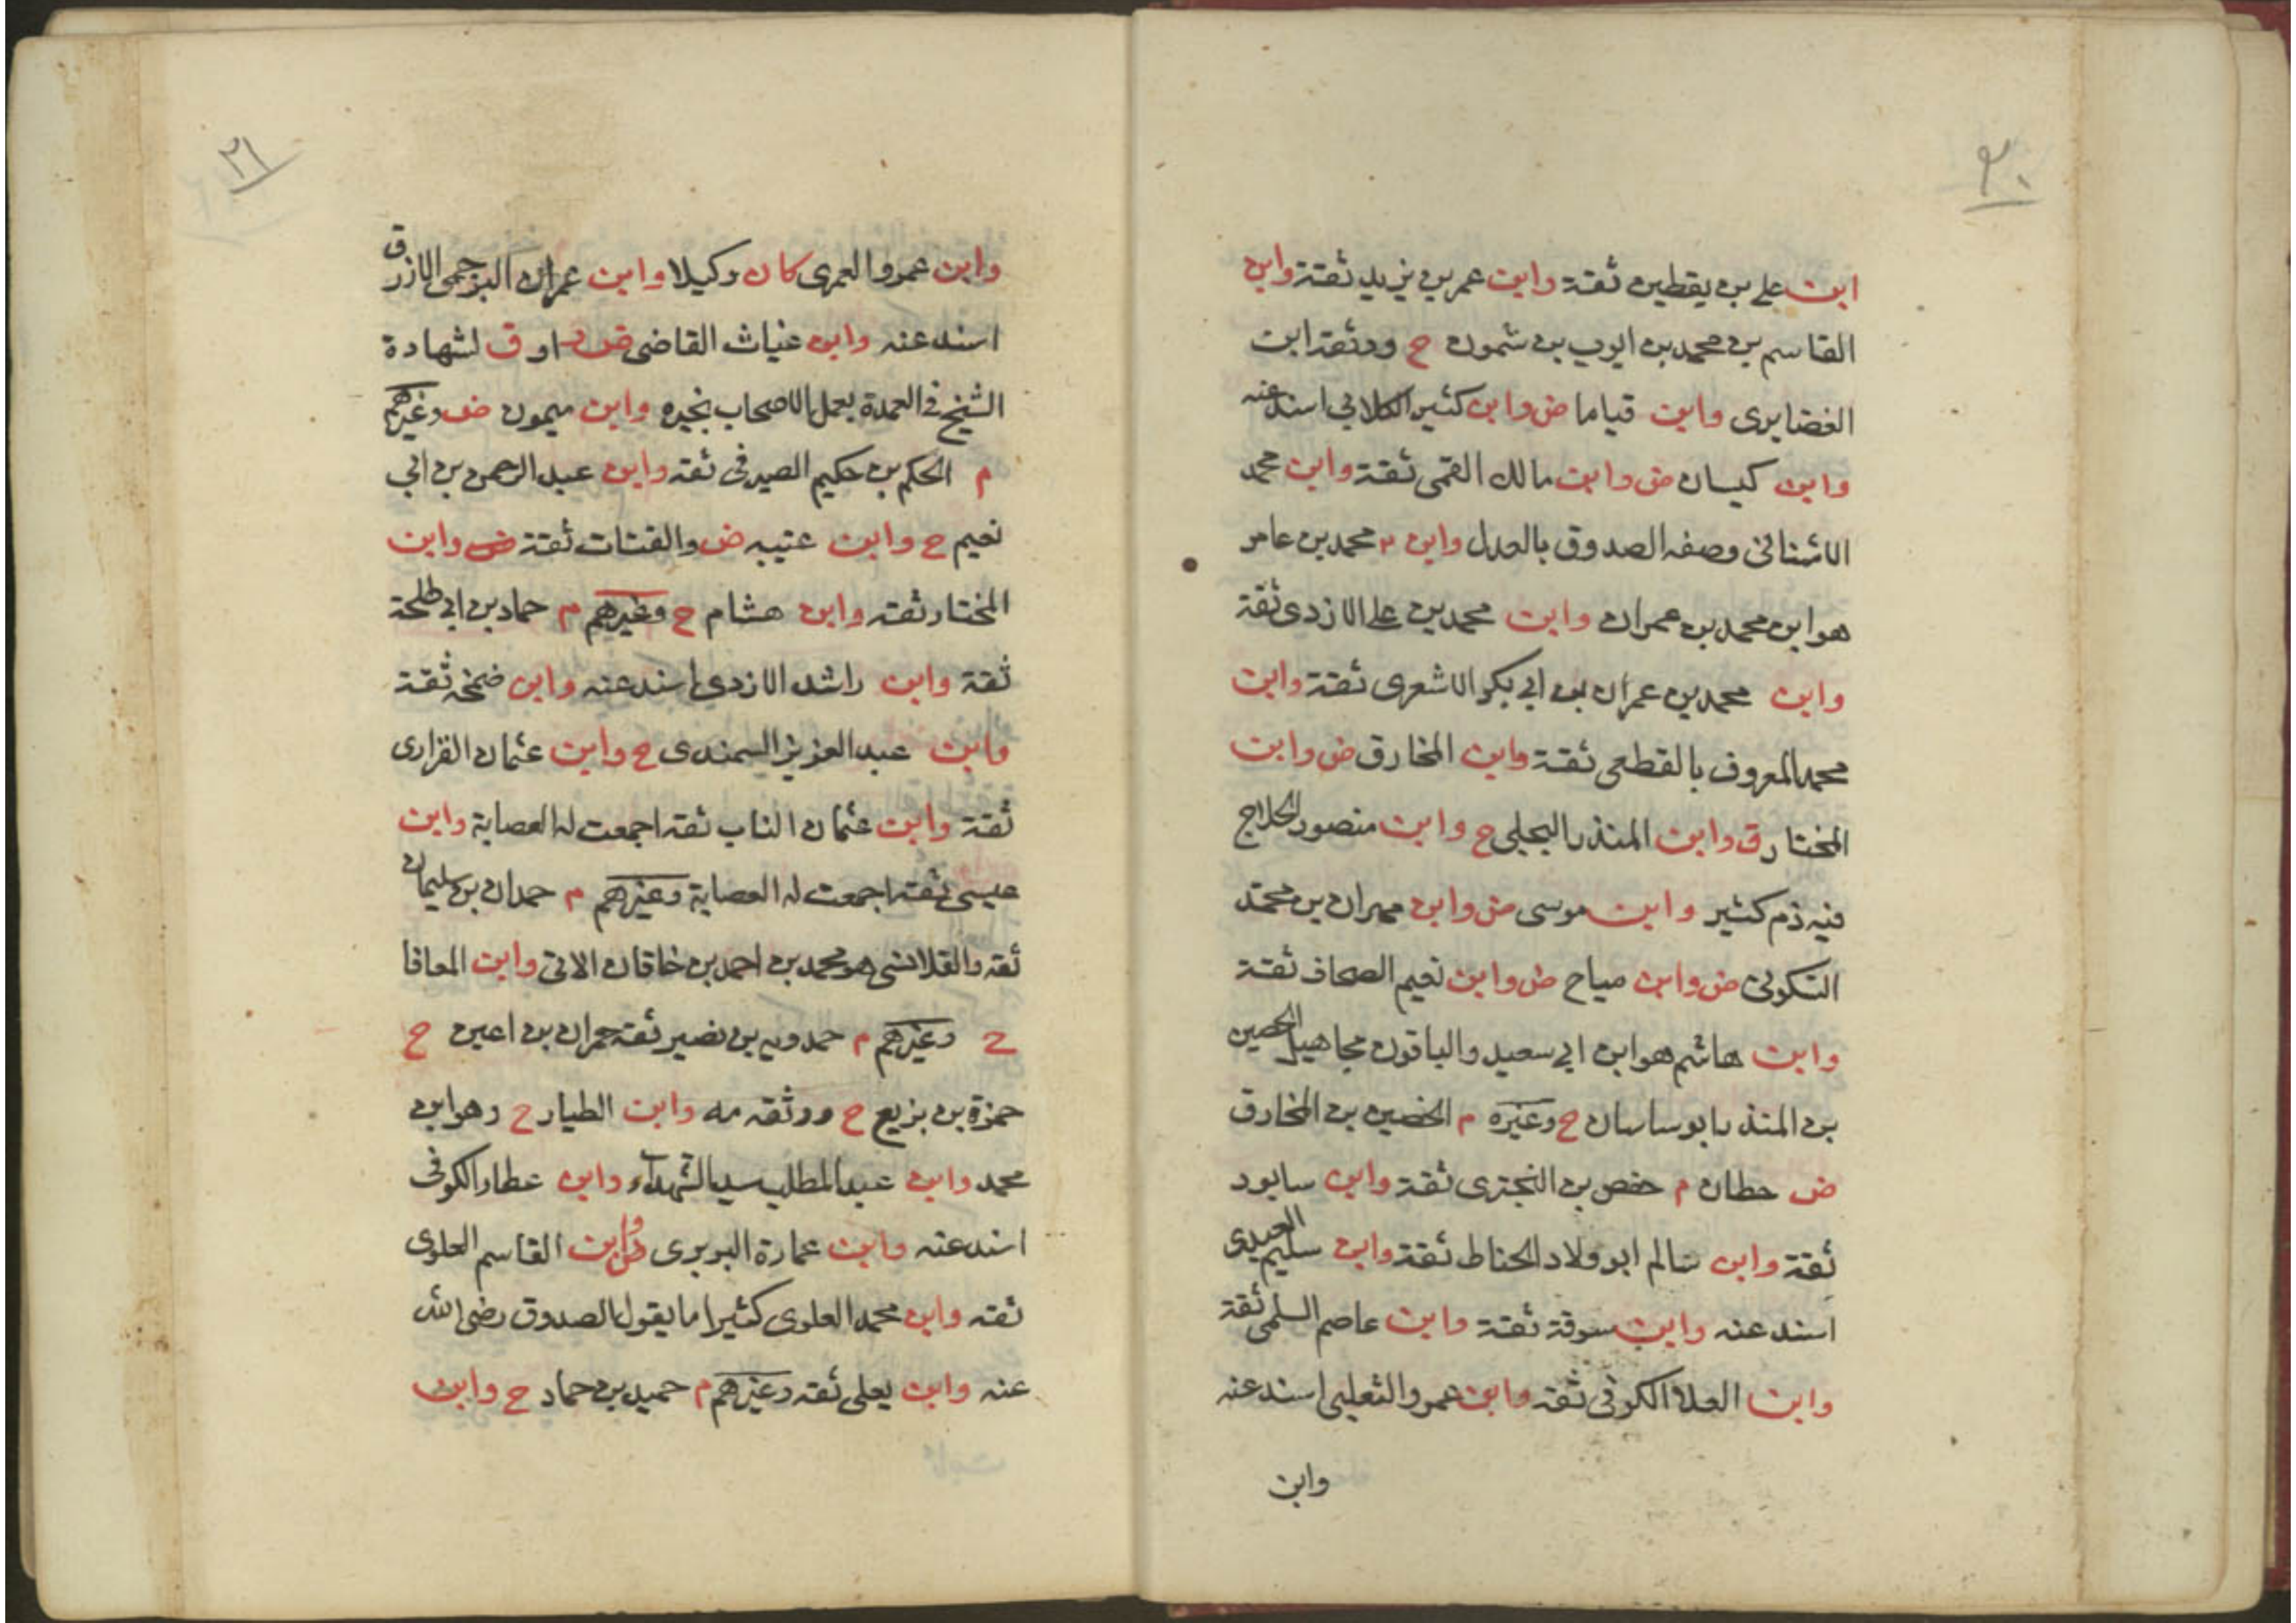 ٢٠
ابن علي بن يقطين ثقة وابن عمر بن يزيد ثقة وابن
القاسم بن محمد بن ايوب بن شمون ح ووثقه ابن
الغضايري وابن قياما ض وابن كثير الكلابي اسند عنه
وابن كيسان ض وابن مالك القمي ثقة وابن محمد
الاشناني وصفه الصدوق بالعدل وابن محمد بن عامر
هو ابن محمد بن عمران وابن محمد بن علي الازدي ثقة
وابن محمد بن عمران بن ابي بكر الاشعري ثقة وابن
محمد المعروف بالقطعي ثقة وابن المخارق ض وابن
المختار ق وابن المنذر البجلي ح وابن منصور الحلاج
فيه ذم كثير وابن موسى ض وابن مهران بن محمد
السكوني ض وابن مياح ض وابن نعيم الصحاف ثقة
وابن هاشم هو ابن ابي سعيد والباقون مجاهيل الحصين
بن المنذر ابو ساسان ح وغيره م الحضين بن المخارق
ض حطان م حفص بن البختري ثقة وابن سابور
ثقة وابن سالم ابو ولاد الحناط ثقة وابن سليم العبدي
اسند عنه وابن سوقة ثقة وابن عاصم السلمي ثقة
وابن العلا الكوفي ثقة وابن عمرو الثعلبي اسند عنه
وابن
٢١
وابن عمرو العمري كان وكيلا وابن عمران البرجمي الازرق
اسند عنه وابن غياث القاضي ض او ق لشهادة
الشيخ في العمدة بعمل الاصحاب بخبره وابن ميمون ض وغيرهم
م الحكم بن حكيم الصيرفي ثقة وابن عبد الرحمن بن ابي
نعيم ح وابن عتيبه ض والقتات ثقة وابن
المختار ثقه وابن هشام ح وغيرهم م حماد بن ابي طلحة
ثقة وابن راشد الازدي اسند عنه وابن ضمخه ثقة
وابن عبد العزيز السمندي ح وابن عثمان الفزاري
ثقة وابن عثمان الناب ثقه اجمعت له العصابة وابن
عيسى ثقه اجمعت له العصابة وغيرهم م حمدان بن سليمان
ثقه والقلانسي هو محمد بن احمد بن خاقان الاتي وابن المعافا
ح وغيرهم م حمدويه بن نصير ثقه حمران بن اعين ح
حمزة بن بزيع ح ووثقه مه وابن الطيار ح وهو ابن
محمد وابن عبد المطلب سيد الشهداء وابن عطار الكوفي
اسند عنه وابن عمارة البربري وابن القاسم العلوي
ثقه وابن محمد العلوي كثيرا ما يقول الصدوق رضي الله
عنه وابن يعلى ثقه وغيرهم م حميد بن حماد ح وابن